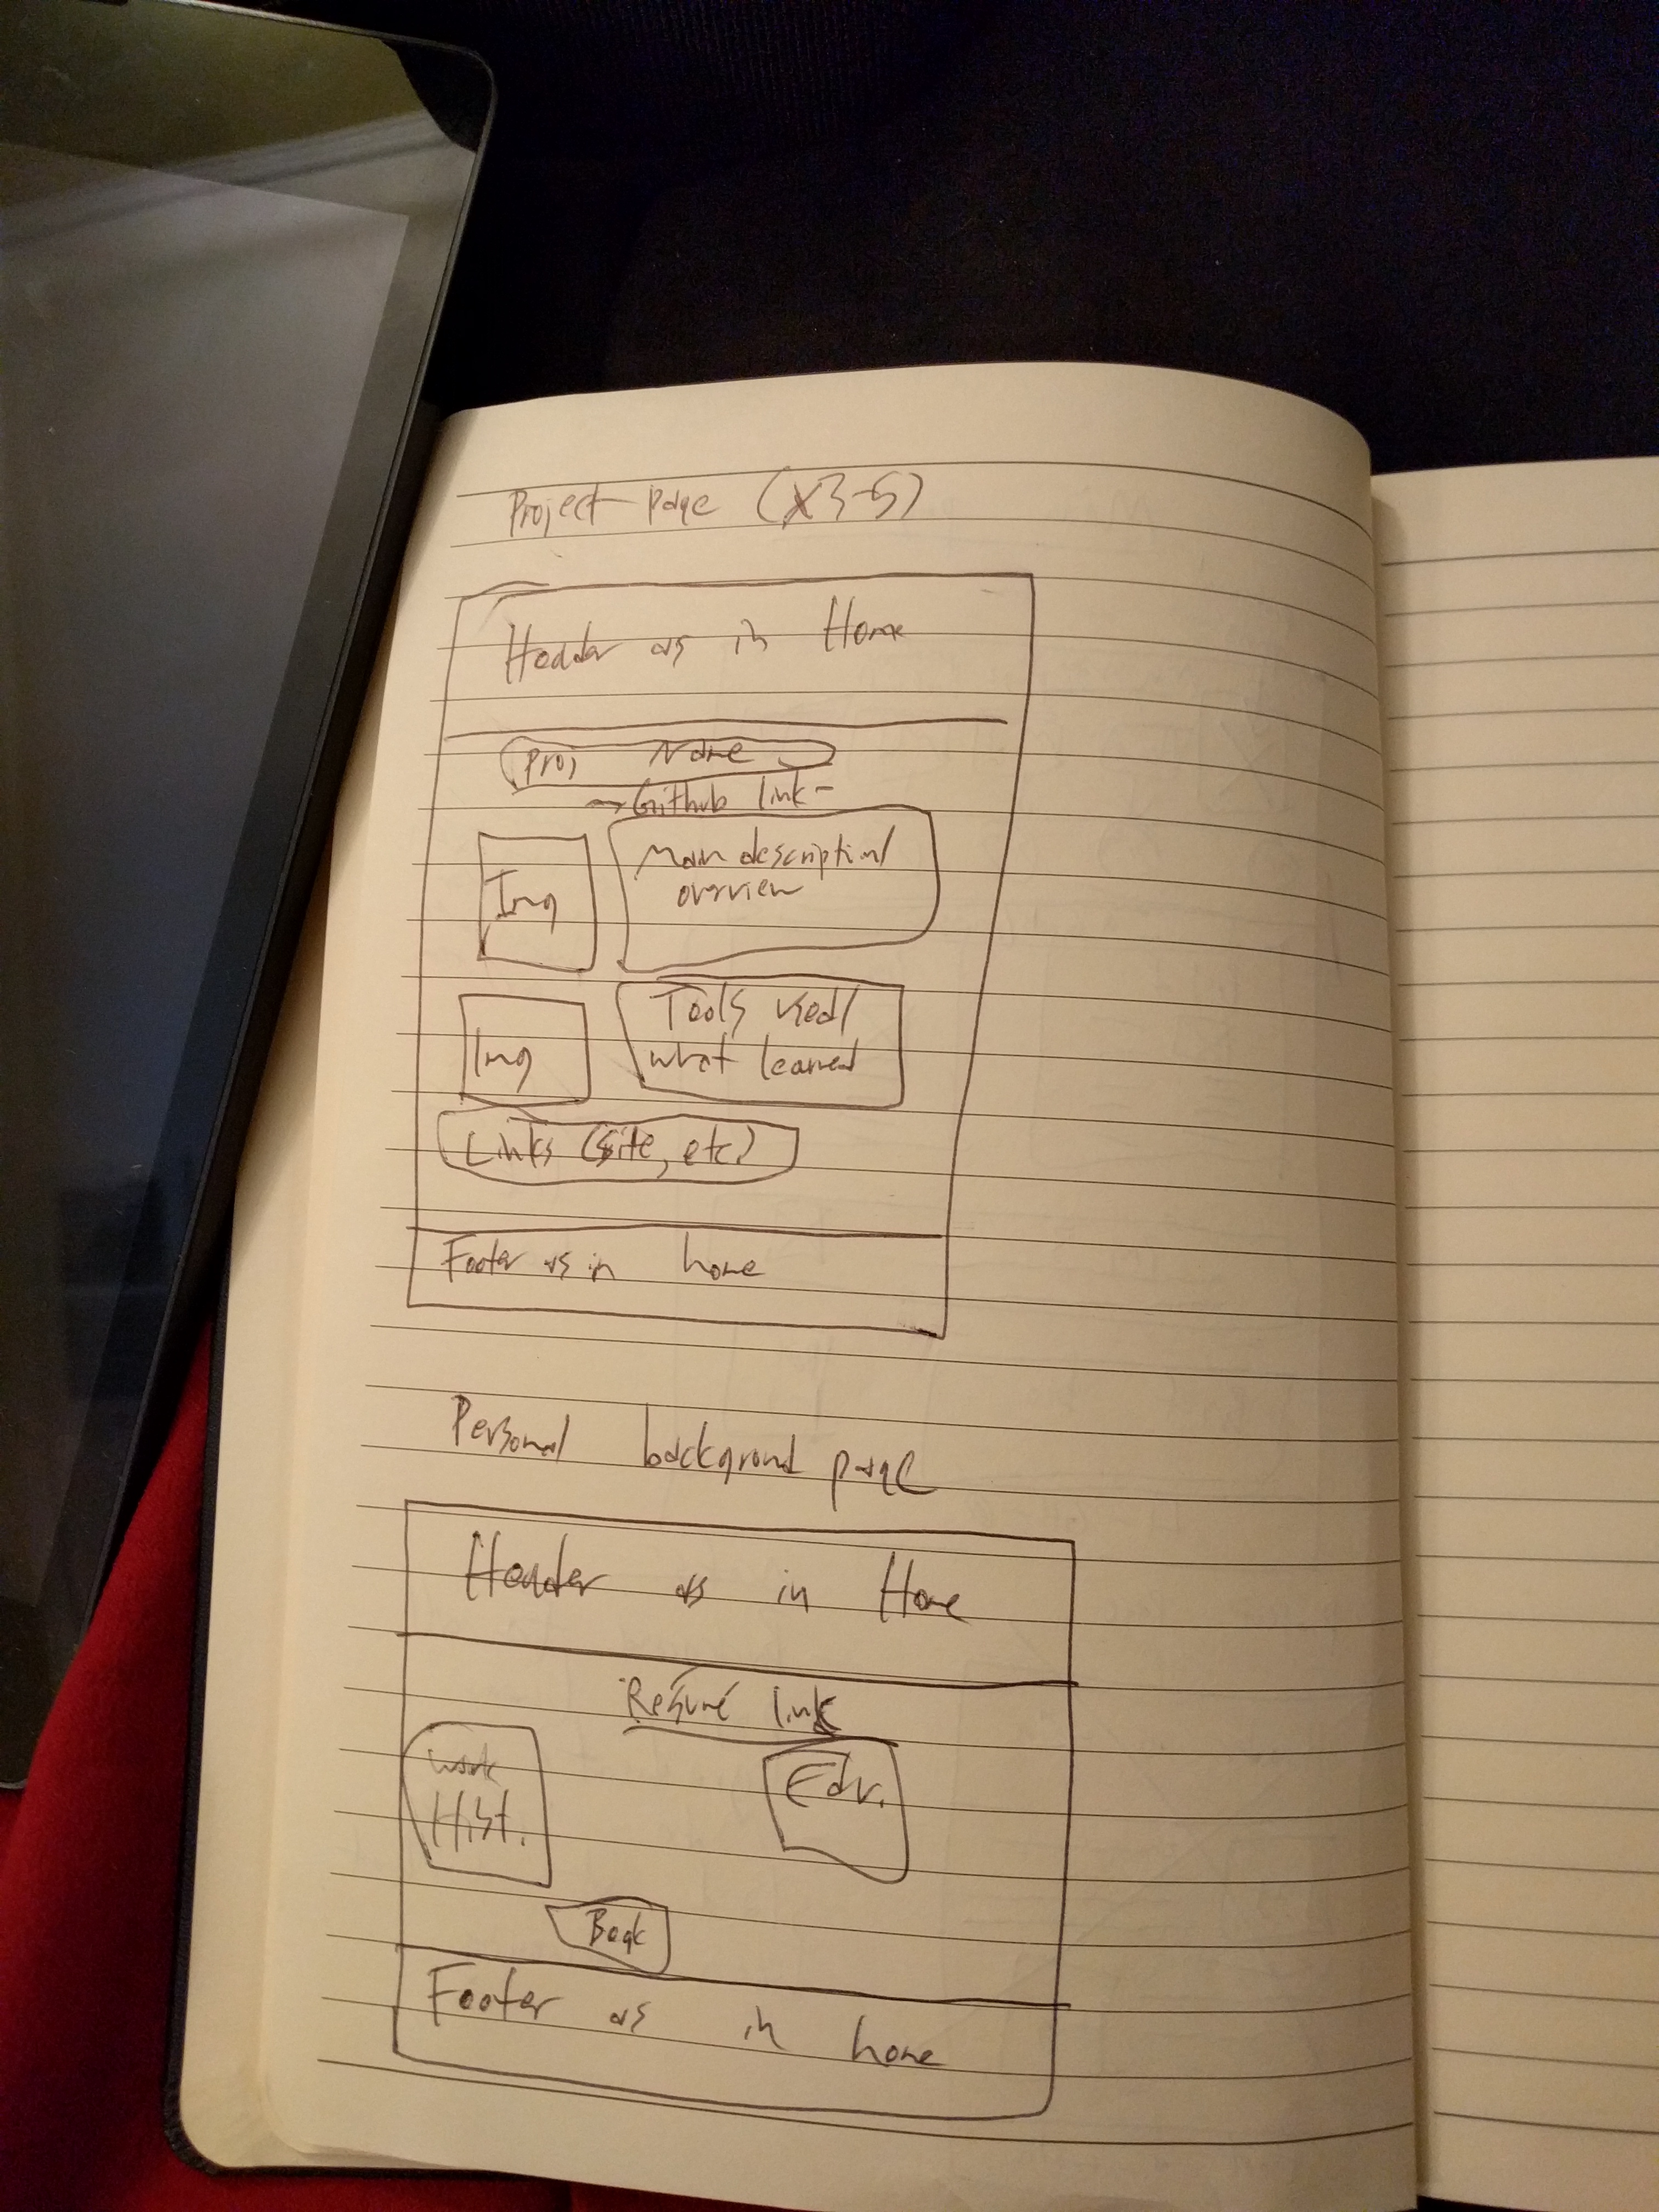 Project page (x3-5)
Header as in Home
Proj Name
→ Github link -
Img
Main description/
overview
Img
Tools used/
what learned
Links (site, etc)
Footer as in home
Personal background page
Header as in Home
Resumé link
Work
Hist.
Edu.
Footer as in home